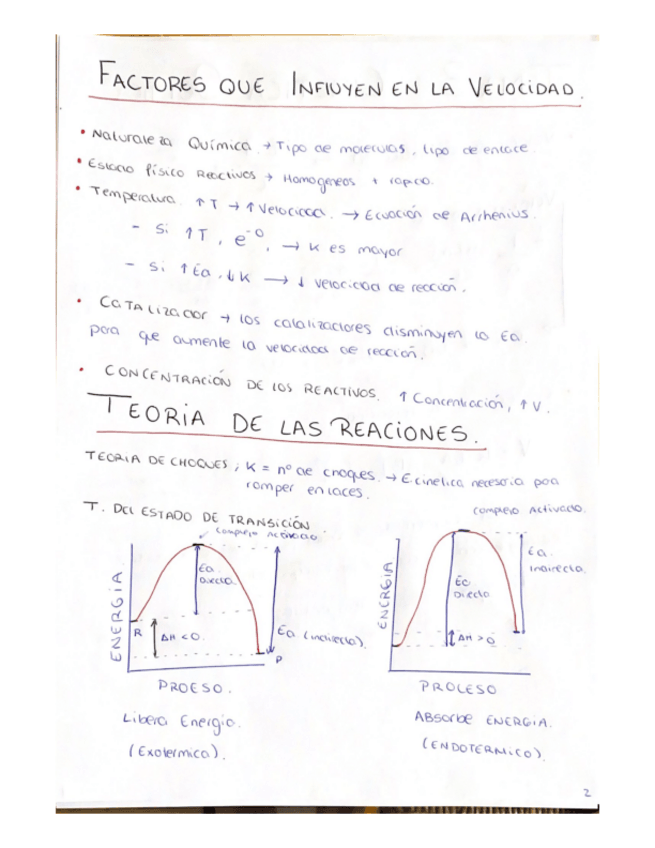 FACTORES QUE INFLUYEN EN LA VELOCIDAD.
• Naturaleza Química → Tipo de moleculas, tipo de enlace.
• Estado físico Reactivos → Homogeneos + rapido.
• Temperatura. ↑T → ↑Velocidad. → Ecuación de Arrhenius.
- Si ↑T, e⁻⁰, → K es mayor
- Si ↑Ea, ↓K → ↓ velocidad de reacción.
• CATALIZADOR → los catalizadores disminuyen la Ea.
para que aumente la velocidad de reacción.
• CONCENTRACIÓN DE LOS REACTIVOS. ↑ Concentración, ↑V.
TEORIA DE LAS REACIONES.
TEORIA DE CHOQUES; K = nº de choques. → E cinetica necesaria para
romper enlaces.
T. DEL ESTADO DE TRANSICIÓN.
complejo Activado
ENERGIA
Ea
Directa
R
ΔH < 0.
Ea (indirecta).
P
PROESO.
Libera Energia.
(Exotermica).
complejo Activado.
ENERGIA
Ea
Directa
Ea
Indirecta
ΔH > 0
PROCESO
ABSORBE ENERGIA.
(ENDOTERMICO).
2